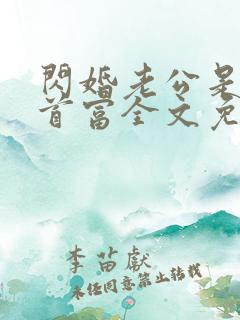 閃婚老公是
首富全文免
李苗獻
未任同意禁止转载